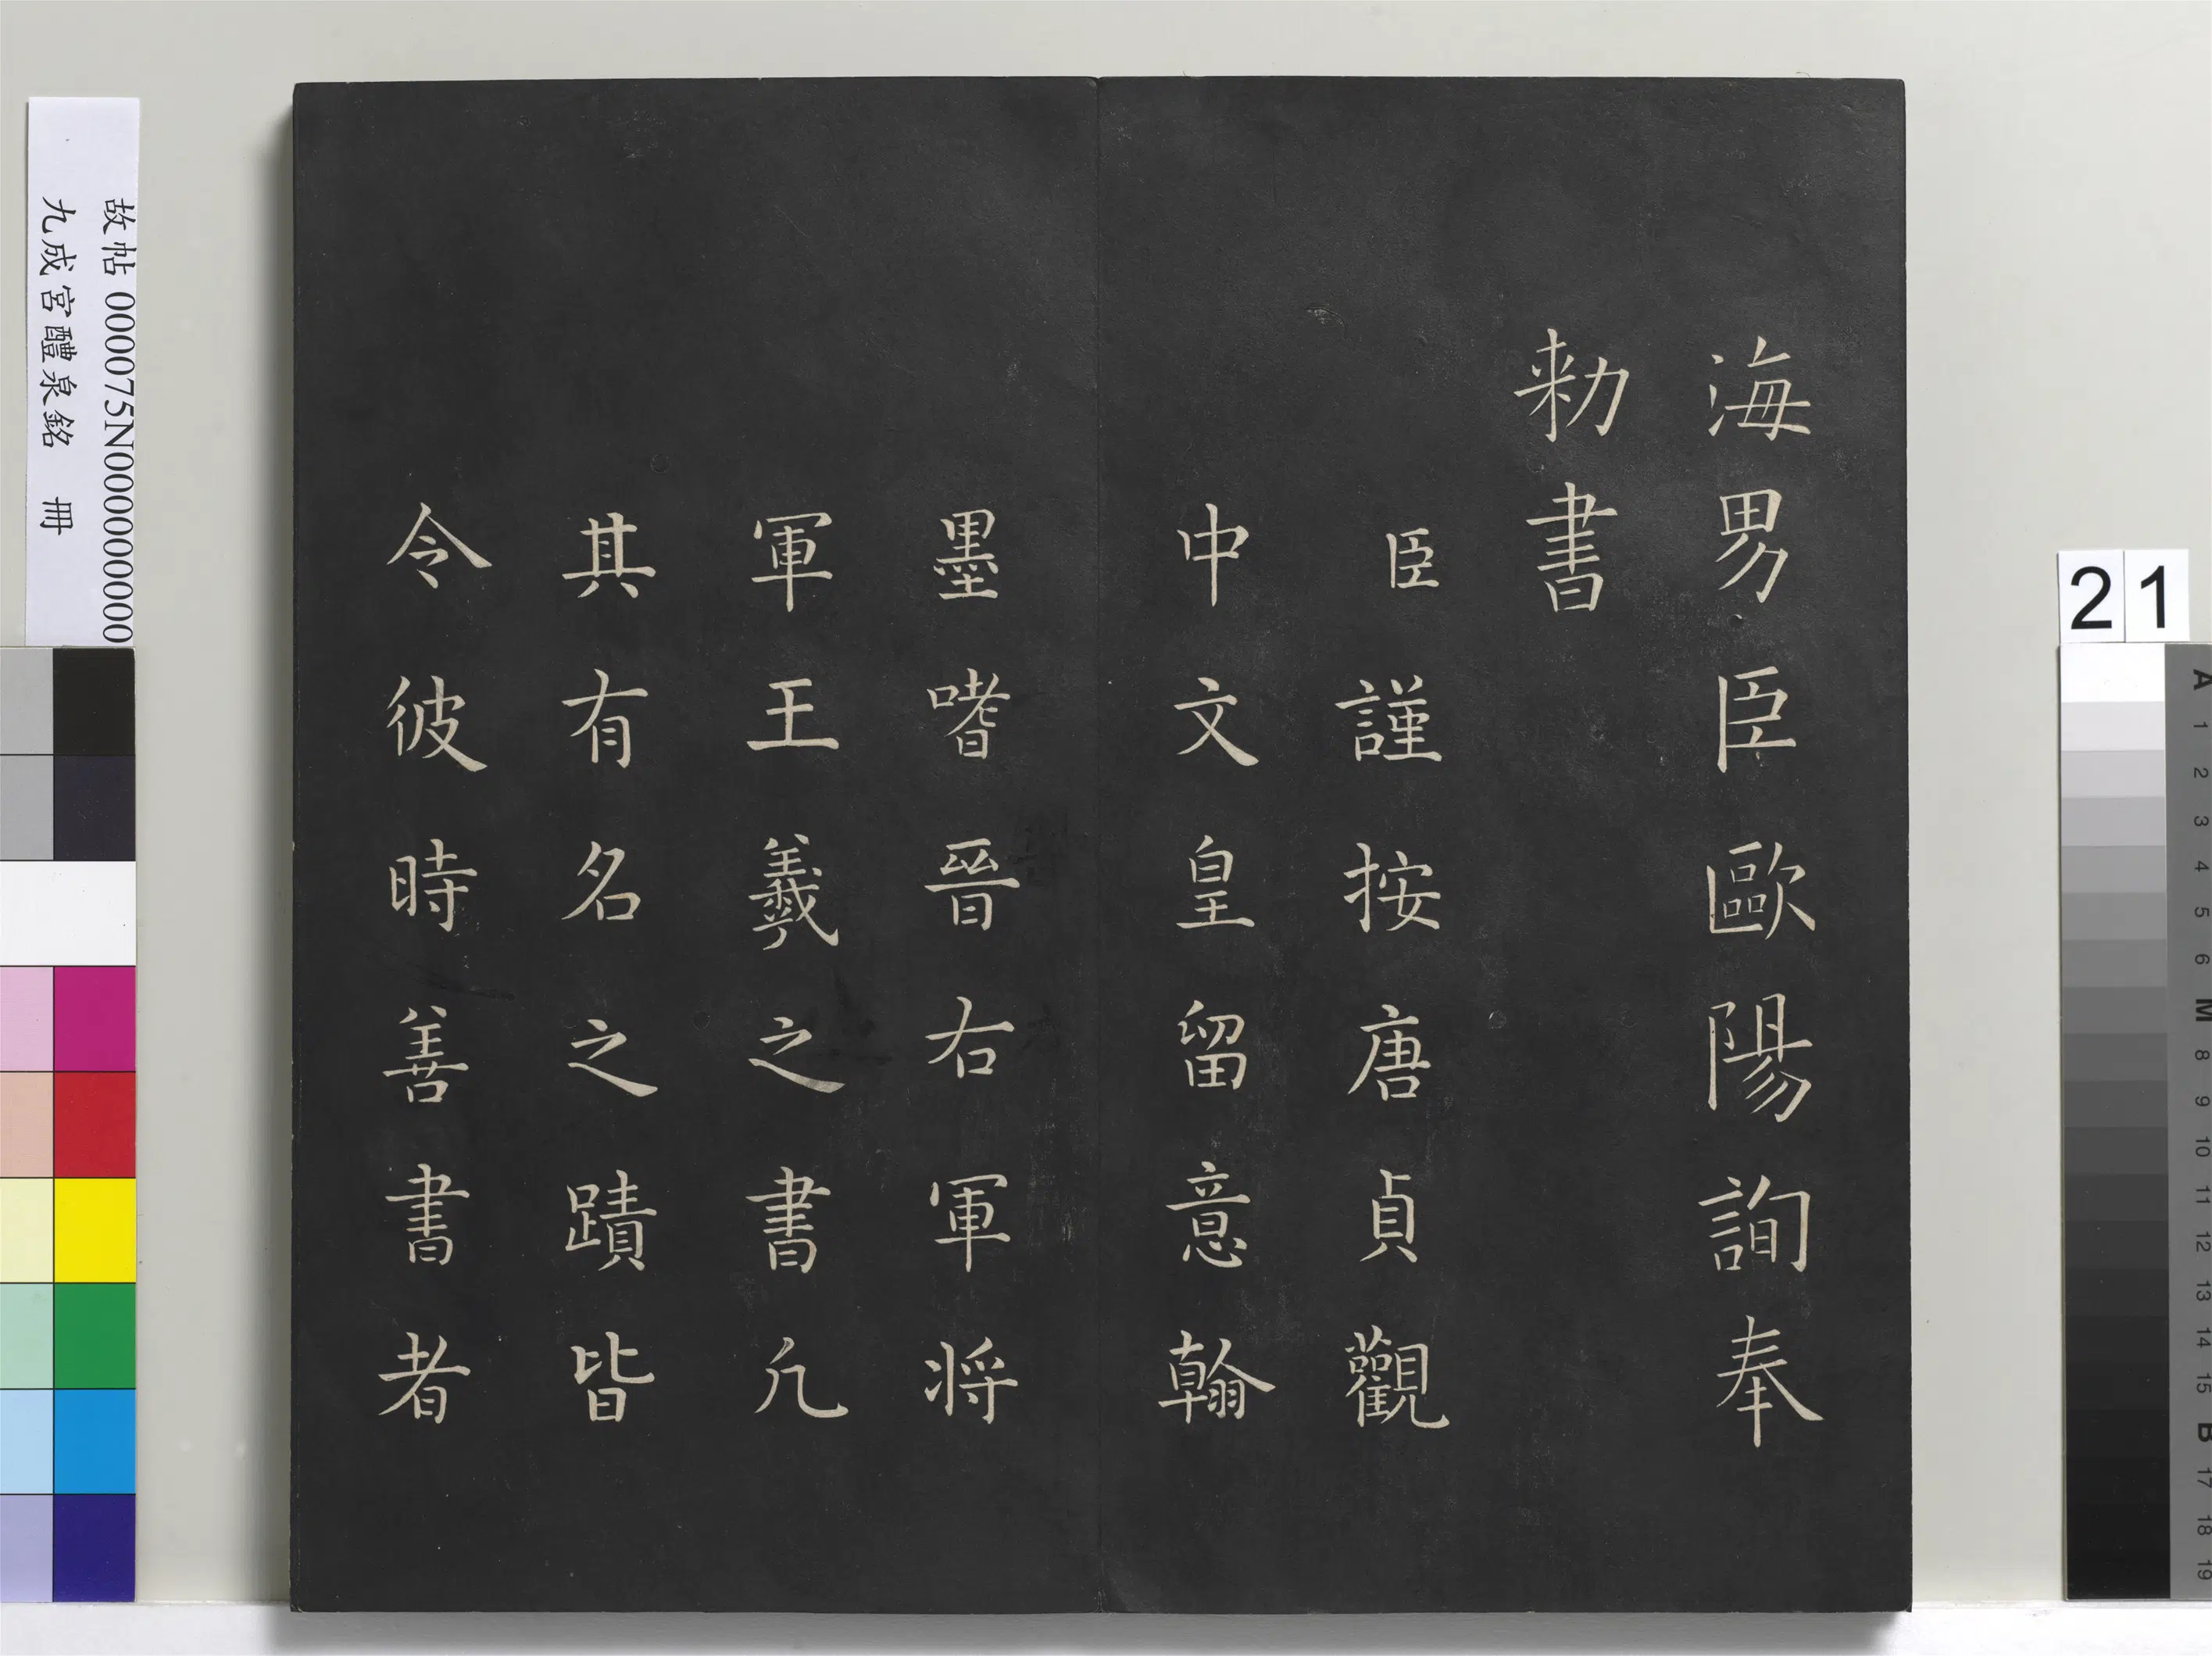 海男臣歐陽詢奉
勑書
臣謹按唐貞觀
中文皇留意翰
墨嗜晉右軍将
軍王羲之書凢
其有名之蹟皆
令彼時善書者
故帖 000075N000000000
九成宮醴泉銘 冊
21
A
1
2
3
4
5
6
M
8
9
10
11
12
13
14
15
B
17
18
19